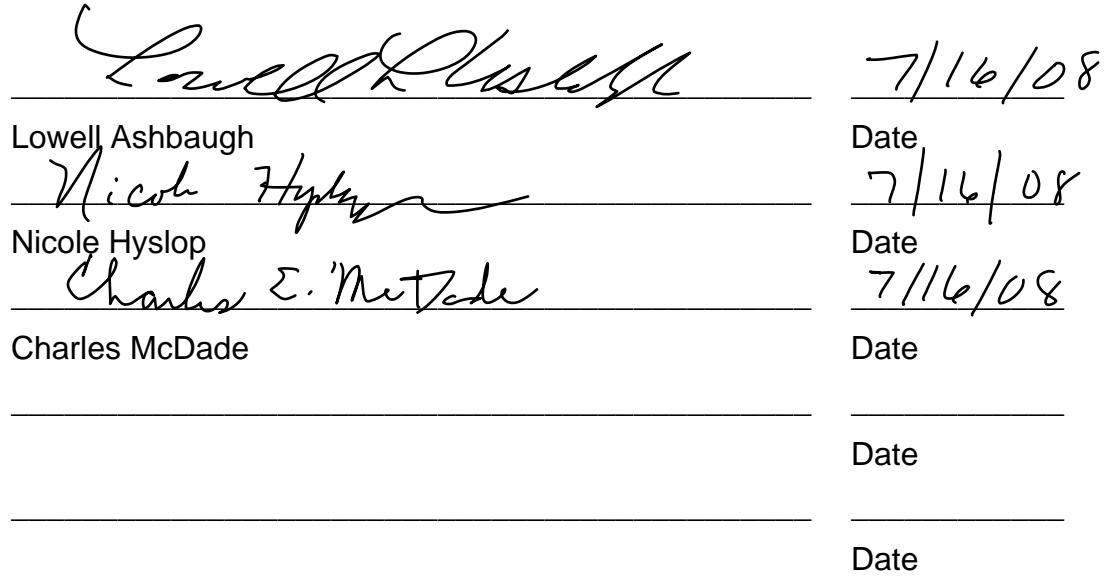 Lowell L Ashbaugh 7/16/08
Lowell Ashbaugh Date
Nicole Hyslop 7/16/08
Nicole Hyslop Date
Charles E. McDade 7/16/08
Charles McDade Date
Date
Date